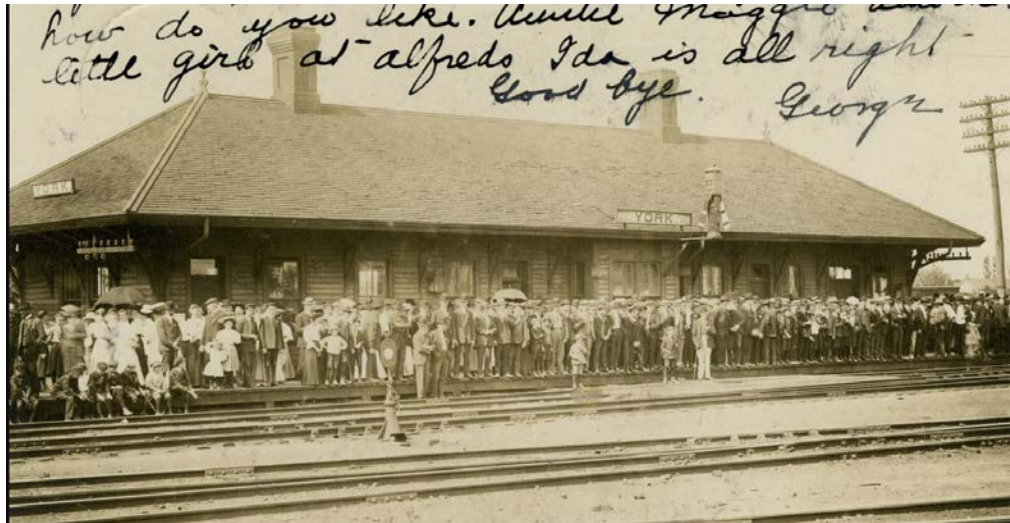 how do you like. Auntie Maggie and
little girl at alfreds Ida is all right
Good bye. George
YORK
YORK